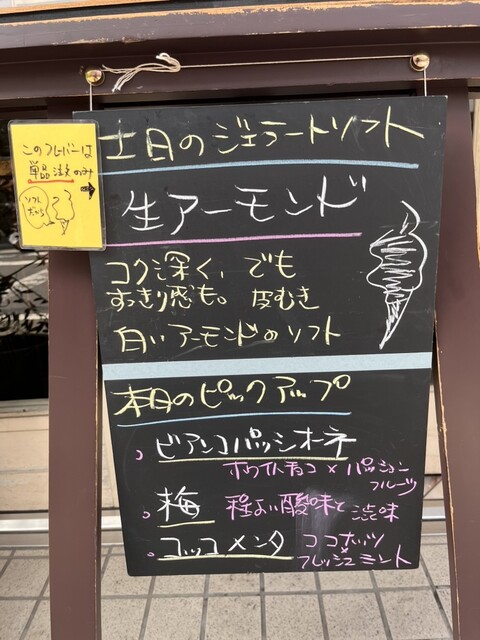 このフレーバーは
単品注文のみ
ソフト
だから
土日のジェラートソフト
生アーモンド
コク深く、でも
すっきり感も。 皮むき
白いアーモンドのソフト
本日のピックアップ
ビアンコパッシオーネ
ホワイトチョコ×パッション
フルーツ
梅 程よい酸味と渋味
コッコメンタ ココナッツ
×
フレッシュミント